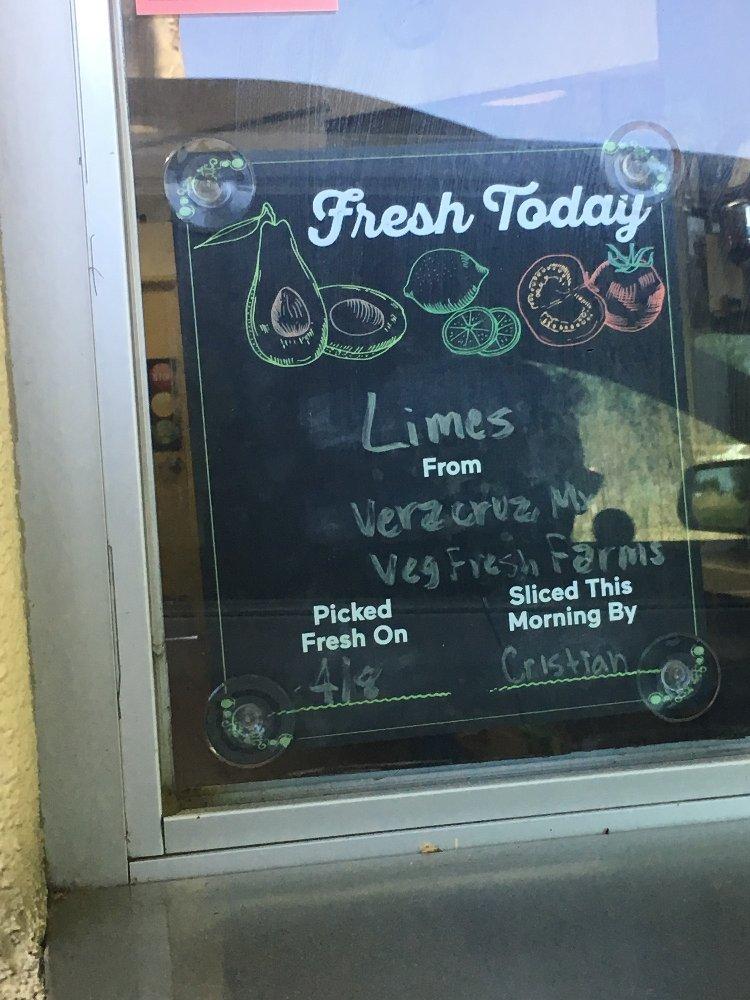 Fresh Today
Limes
From
Veracruz, Mx
Veg Fresh Farms
Picked
Fresh On
4/8
Sliced This
Morning By
Cristian